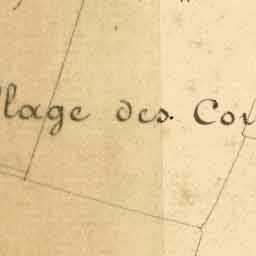 llage des. Cor